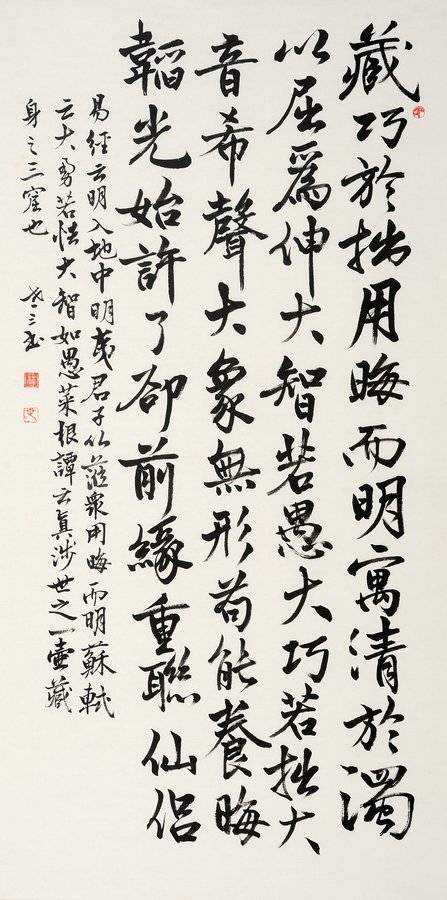 藏巧於拙用晦而明寓清於濁
以屈為伸大智若愚大巧若拙大
音希聲大象無形苟能養晦
韜光始許了卻前緣重聯仙侶
易經云明入地中明夷君子以蒞眾用晦而明蘇軾
云大勇若怯大智如愚菜根譚云真涉世之一壺藏
身之三窟也